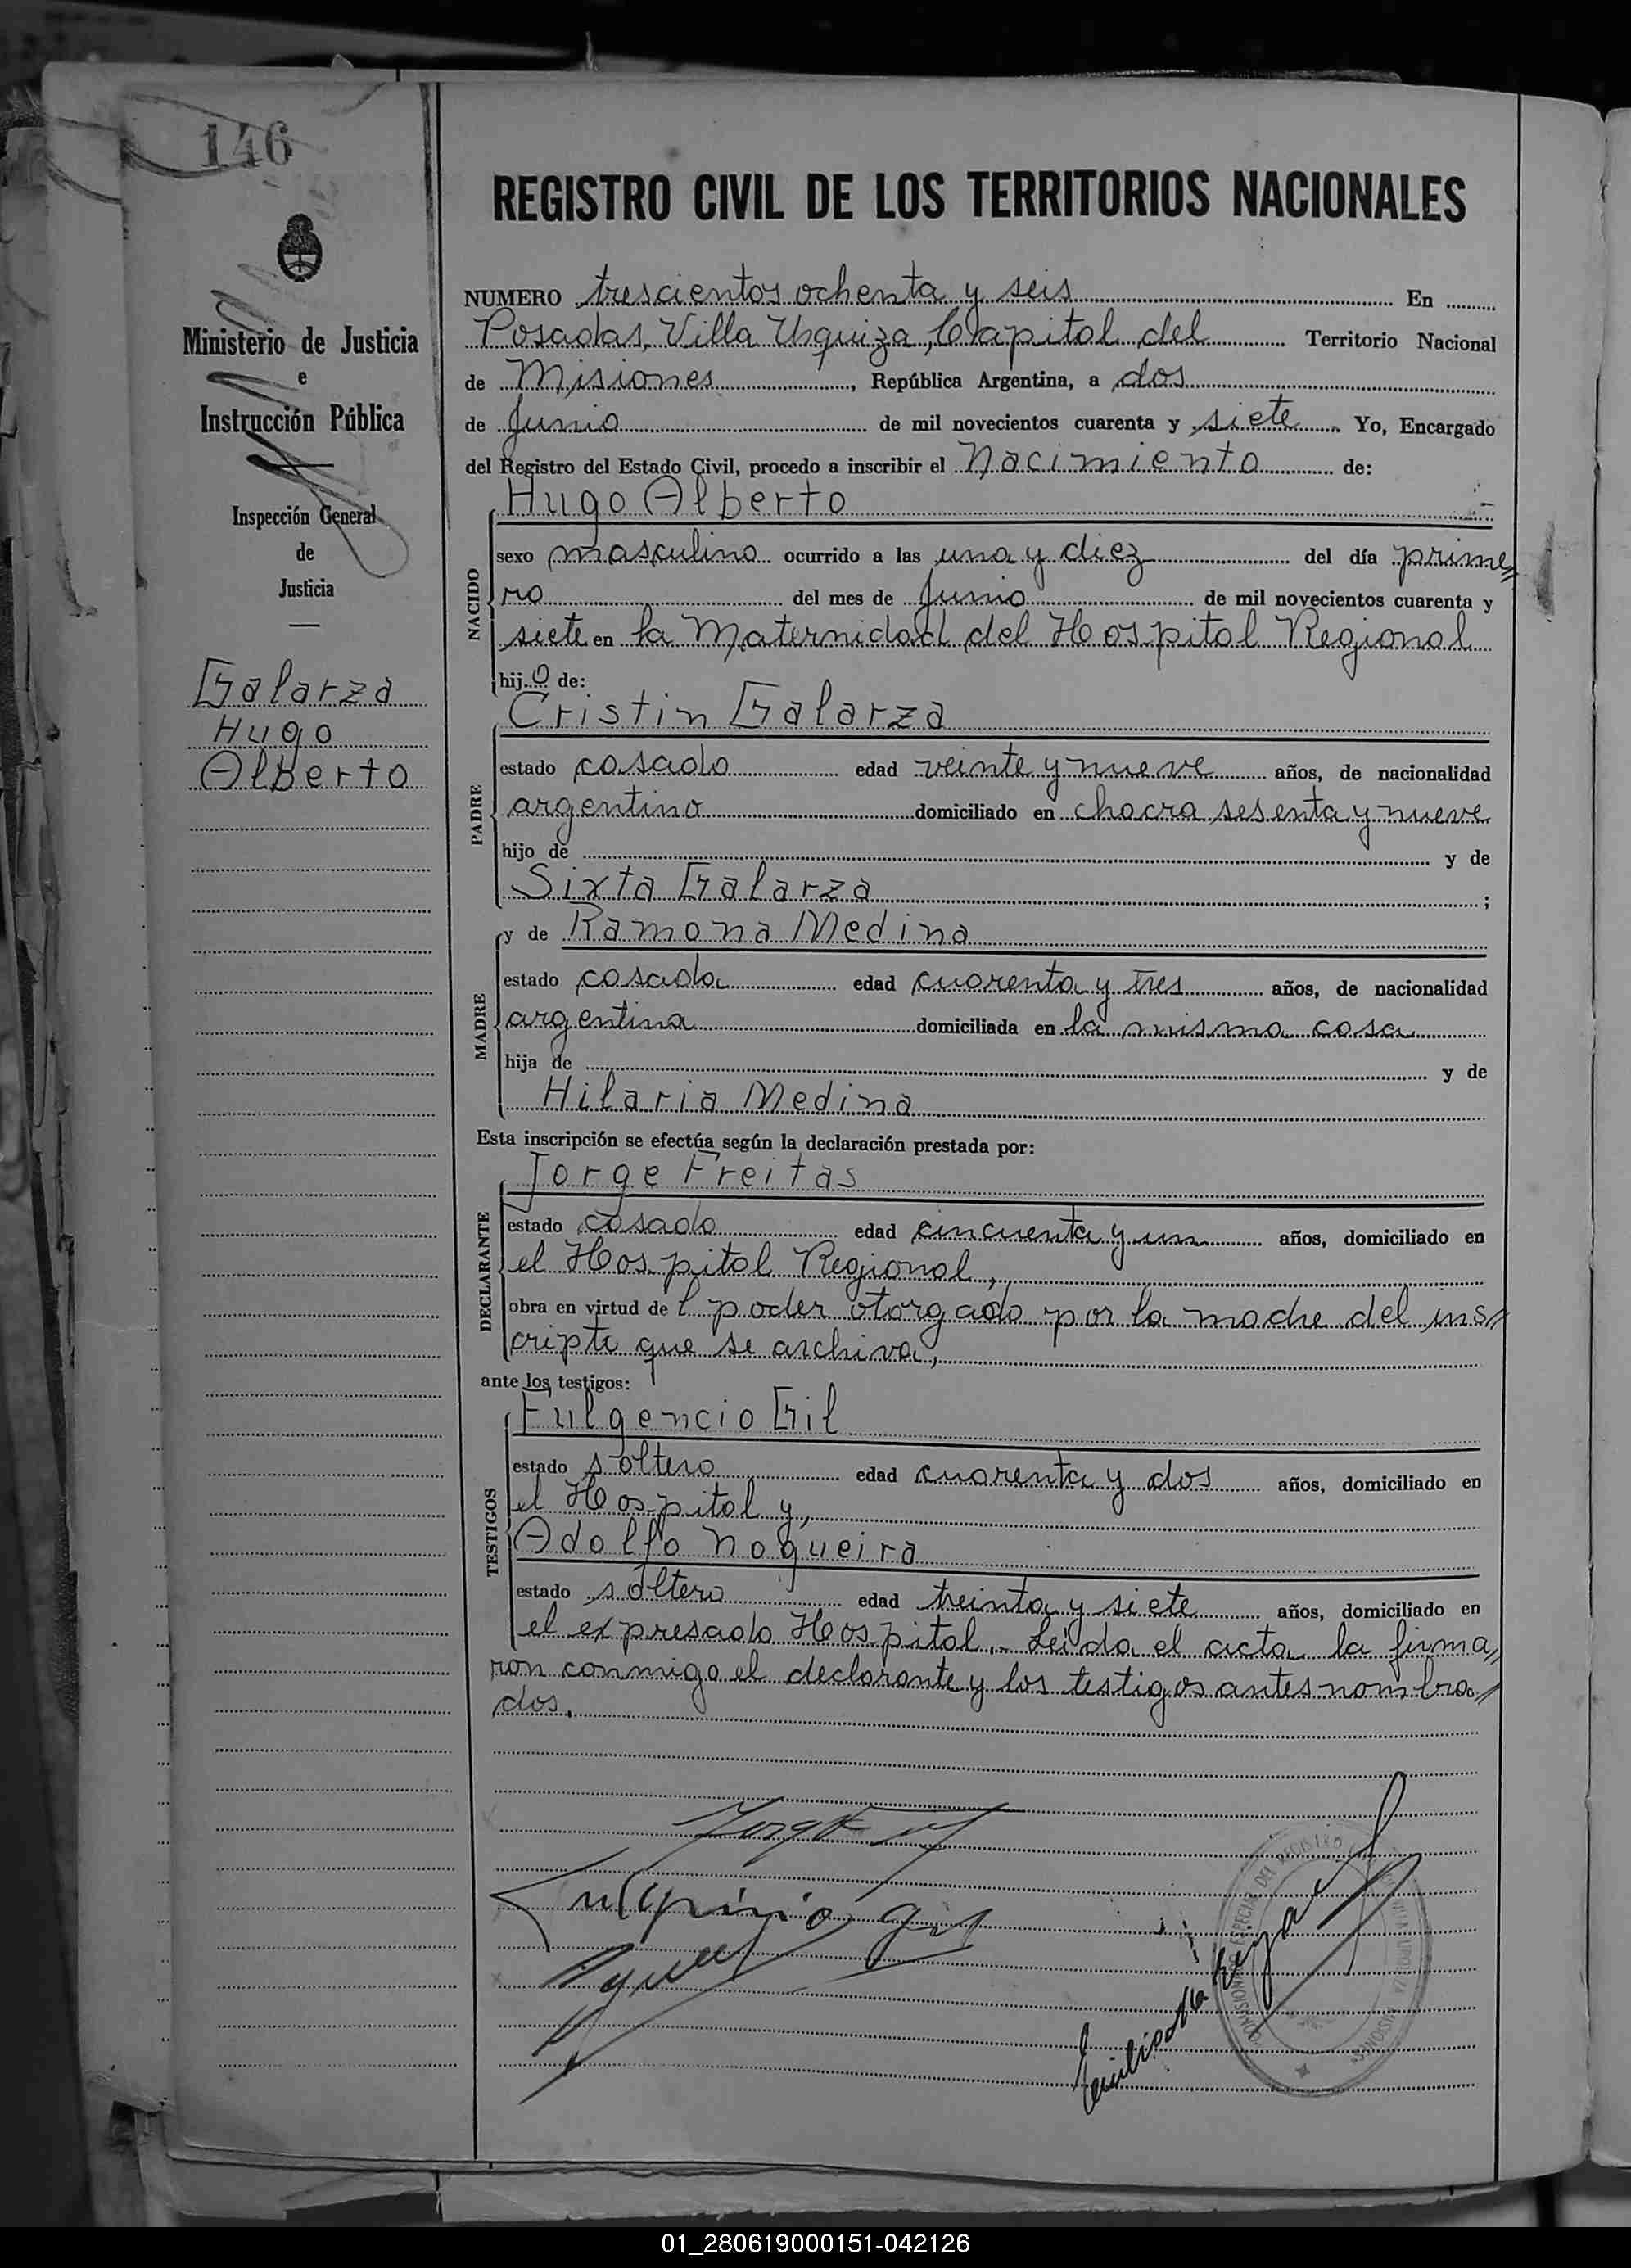 146
REGISTRO CIVIL DE LOS TERRITORIOS NACIONALES
Ministerio de Justicia
e
Instrucción Pública
Inspección General
de
Justicia
Galarza
Hugo
Alberto
NUMERO trescientos ochenta y seis En
Posadas, Villa Urquiza, Capital del Territorio Nacional
de Misiones, República Argentina, a dos
de Junio de mil novecientos cuarenta y siete. Yo, Encargado
del Registro del Estado Civil, procedo a inscribir el Nacimiento de:
Hugo Alberto
NACIDO
sexo masculino ocurrido a las una y diez del día prime
ro del mes de Junio de mil novecientos cuarenta y
siete en la Maternidad del Hospital Regional
hijo de:
Cristin Galarza
PADRE
estado casado edad veinte y nueve años, de nacionalidad
argentino domiciliado en chacra sesenta y nueve
hijo de y de
Sixta Galarza ;
y de Ramona Medina
MADRE
estado casada edad cuarenta y tres años, de nacionalidad
argentina domiciliada en la misma casa
hija de y de
Hilaria Medina
Esta inscripción se efectúa según la declaración prestada por:
Jorge Freitas
DECLARANTE
estado casado edad cincuenta y un años, domiciliado en
el Hospital Regional,
obra en virtud de l poder otorgado por la madre del ins
cripto que se archiva,
ante los testigos:
Fulgencio Gil
TESTIGOS
estado soltero edad cuarenta y dos años, domiciliado en
el Hospital y,
Adolfo Nogueira
estado soltero edad treinta y siete años, domiciliado en
el expresado Hospital.- Leida el acta la firma
ron conmigo el declarante y los testigos antes nombra
dos.
Fulgencio Gil
01_280619000151-042126